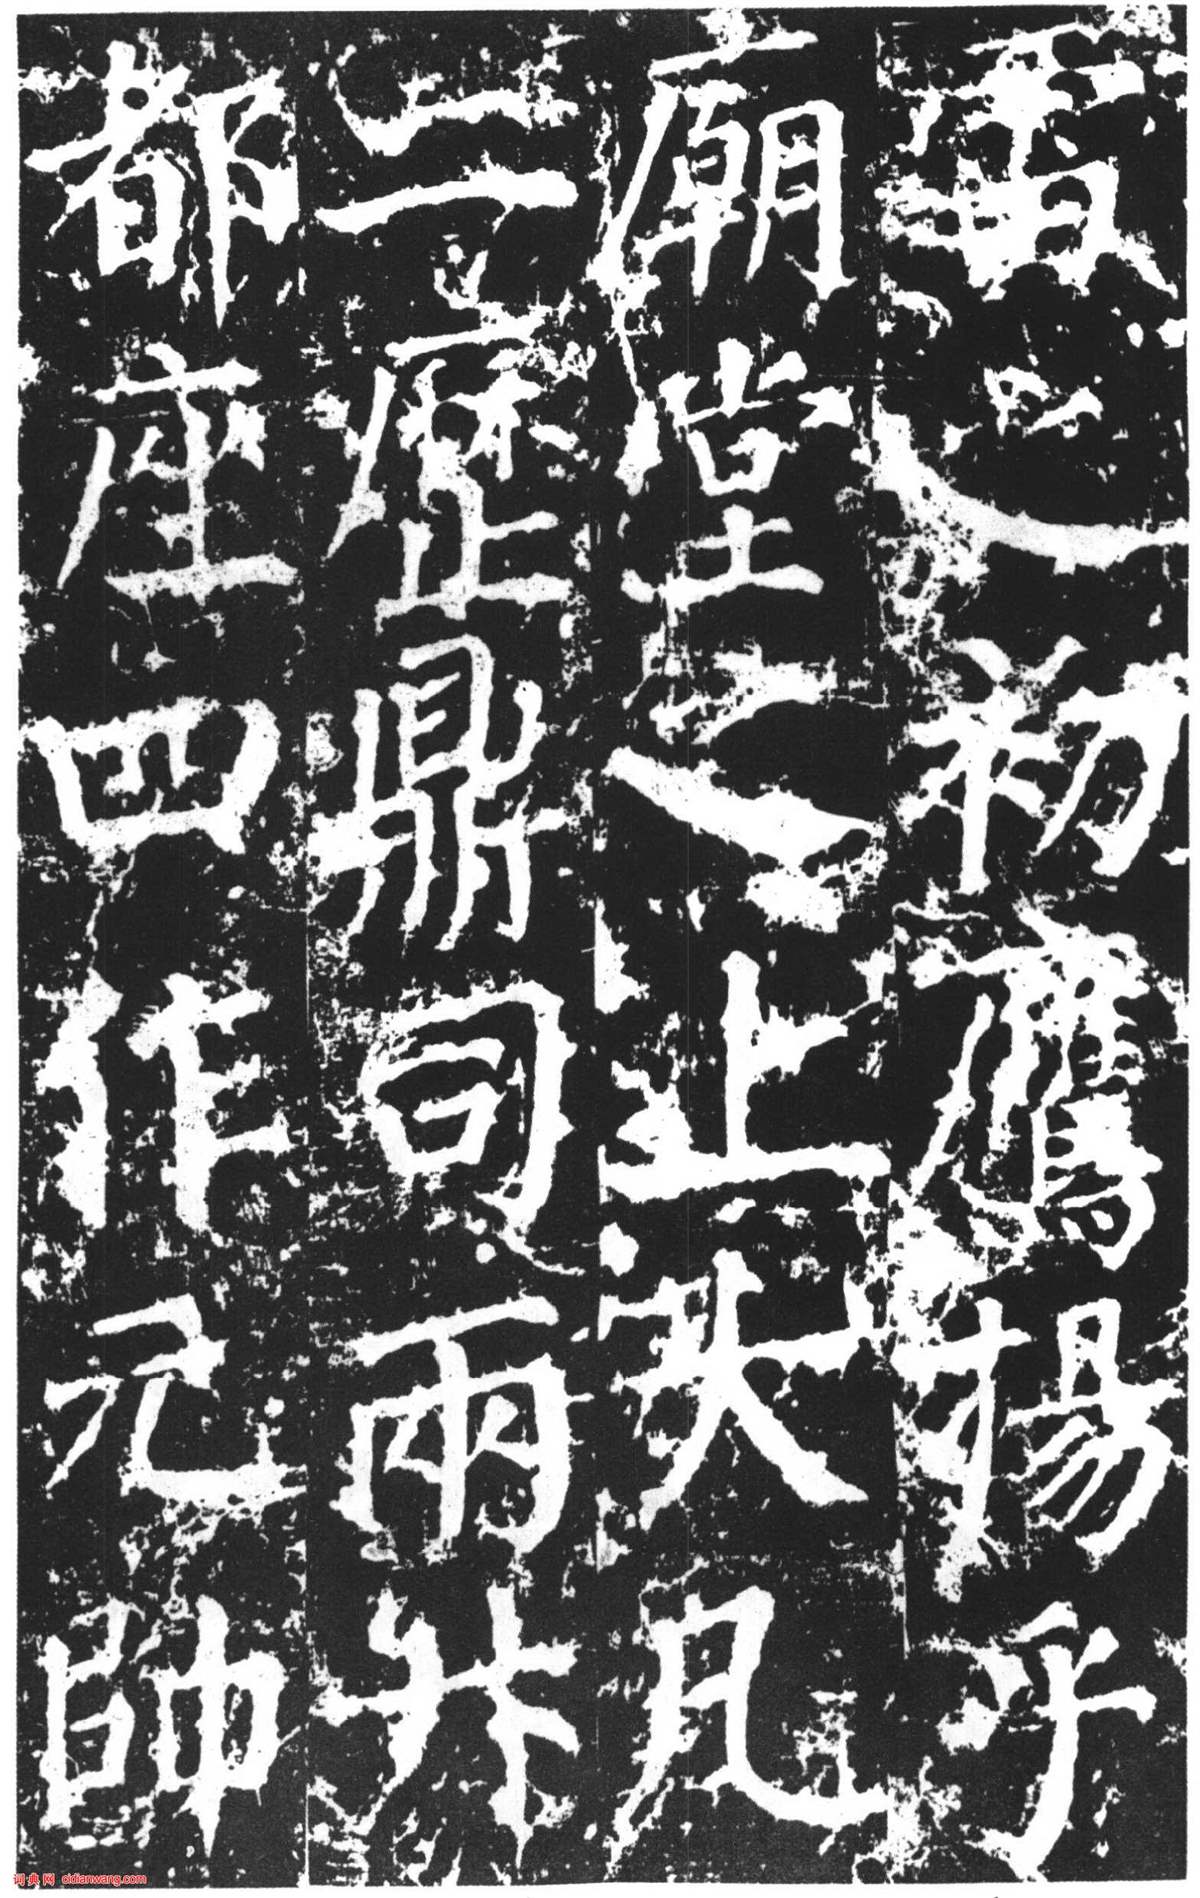 雷之初鷹揚乎
廟堂之上大凡
二歷鼎司兩升
都座四作元帥
词典网 cidianwang.com